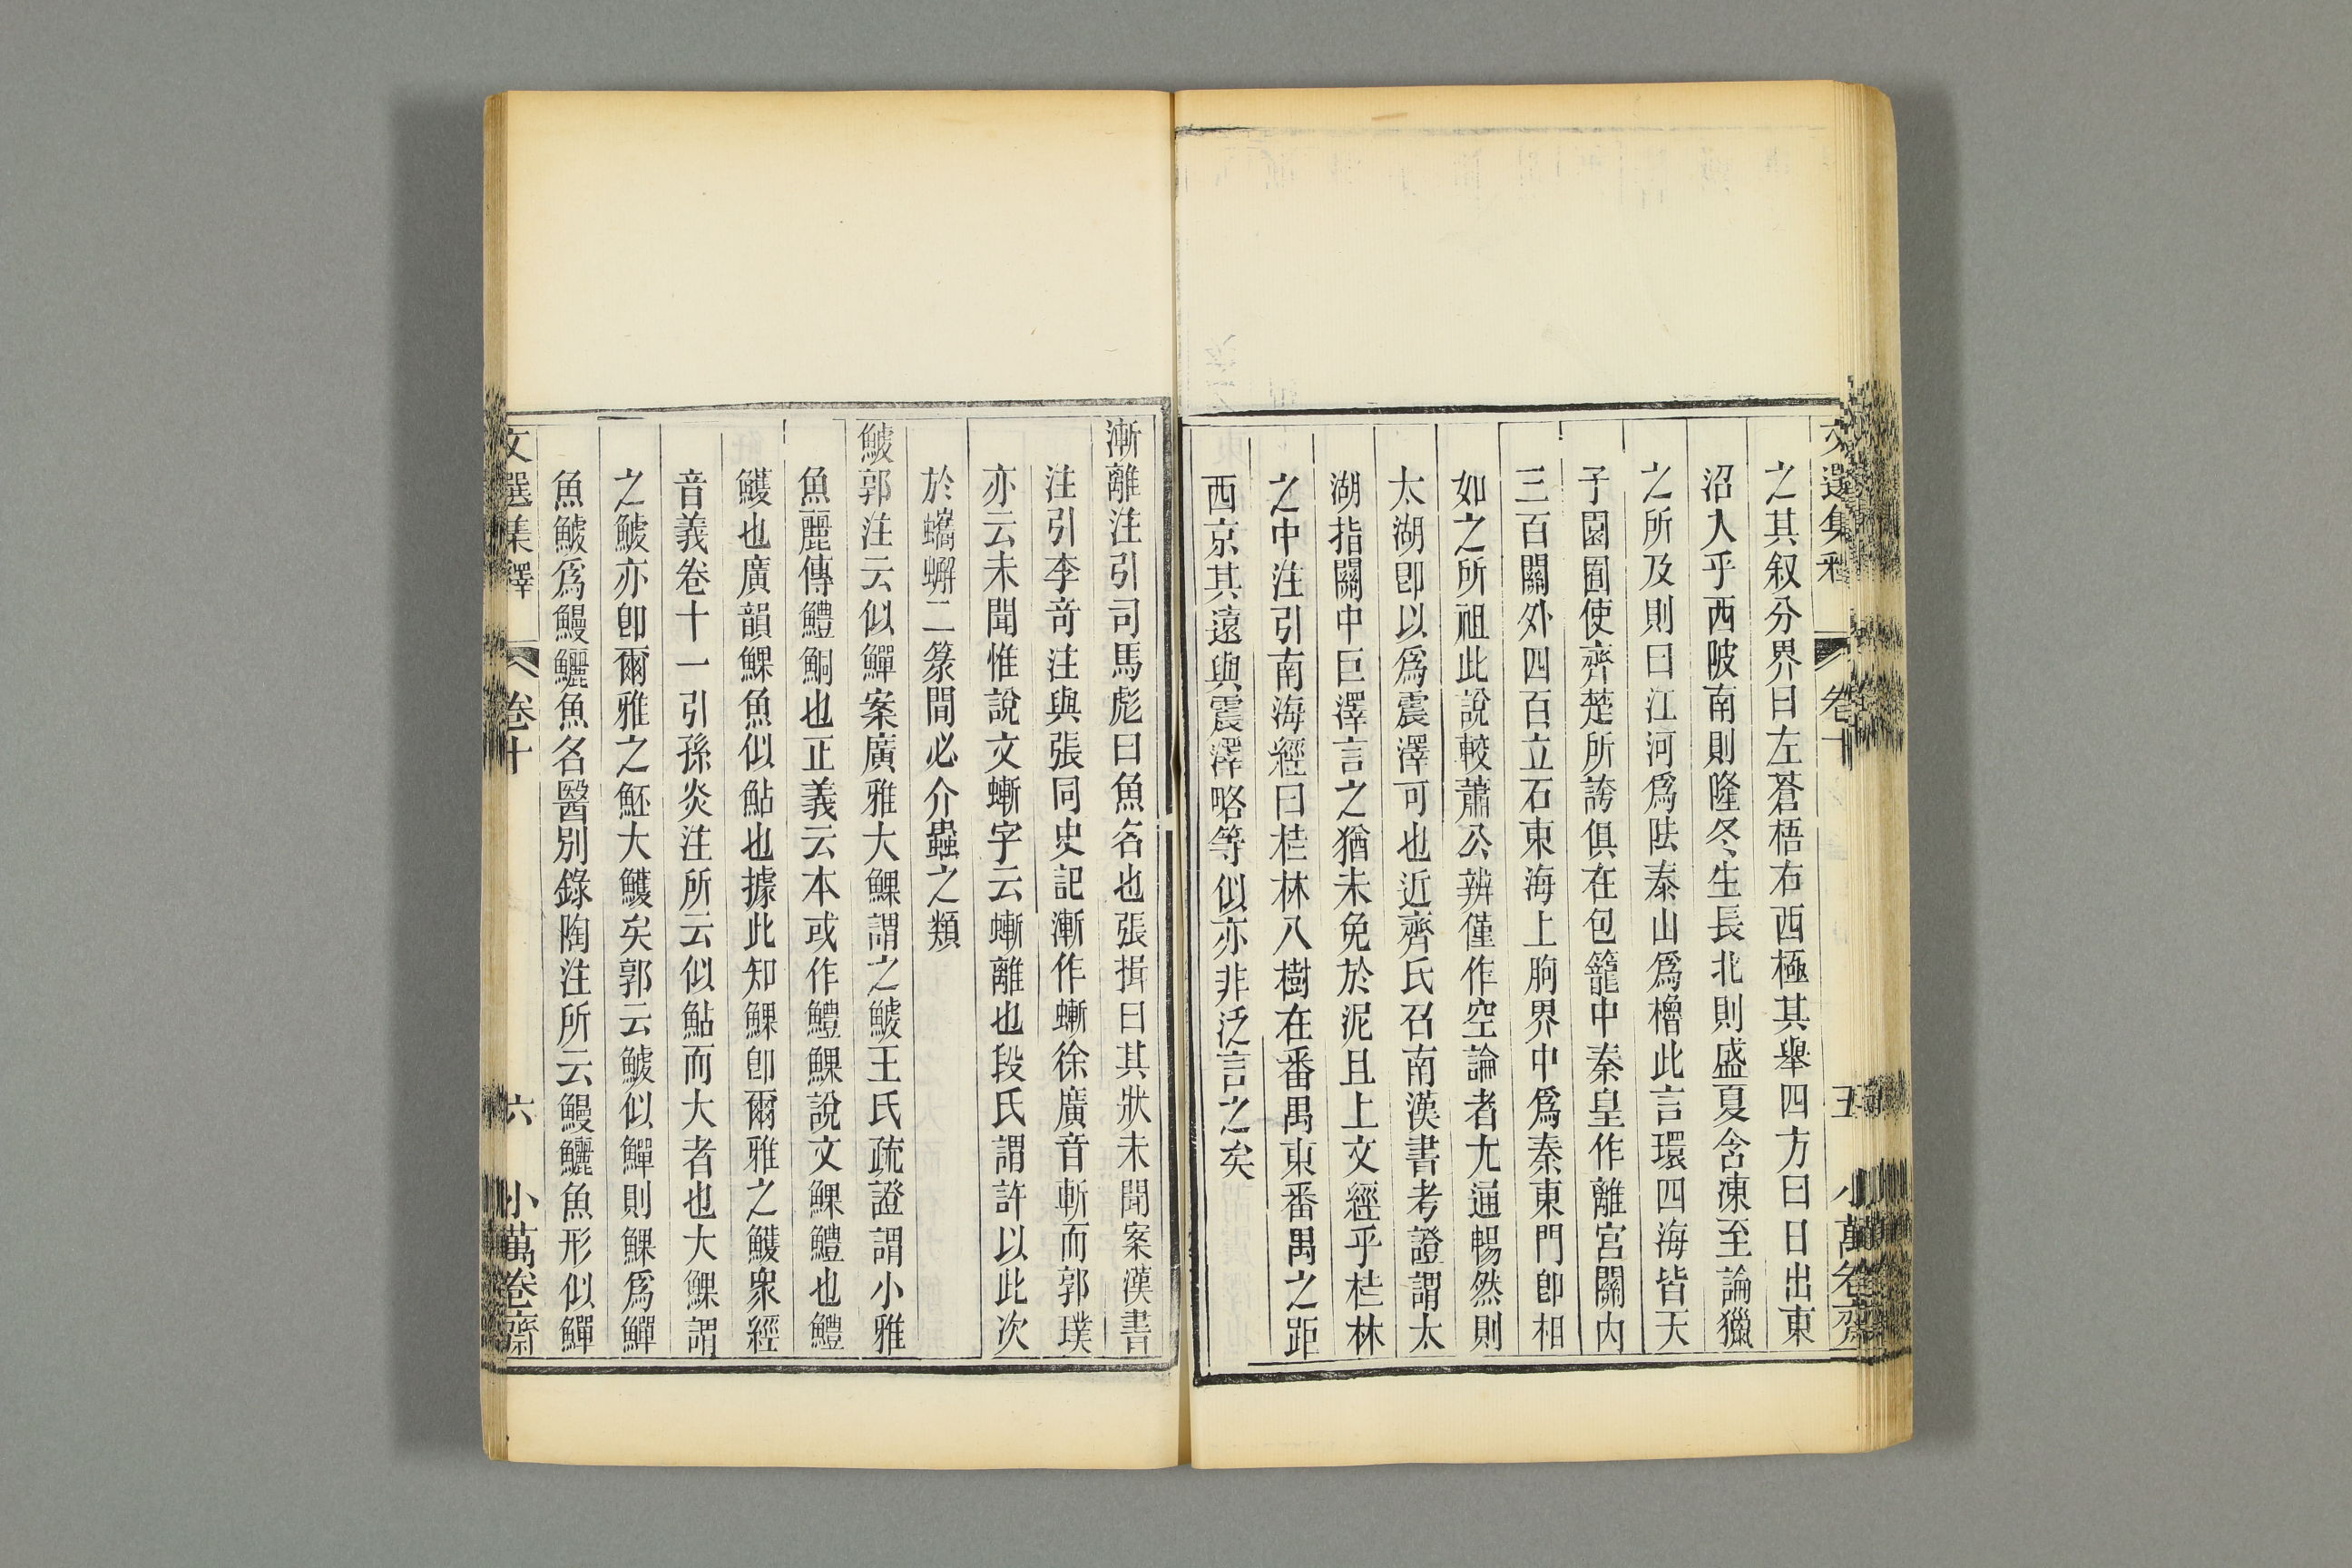 文選集釋 卷十 五 小萬卷齋
之其叙分界曰左蒼梧右西極其舉四方曰日出東
沼入乎西陂南則隆冬生長北則盛夏含凍至論獵
之所及則曰江河爲阹泰山爲櫓此言環四海皆天
子園囿使齊楚所誇俱在包籠中秦皇作離宮關內
三百關外四百立石東海上朐界中爲秦東門卽相
如之所祖此說較蕭公辨僅作空論者尤通暢然則
太湖卽以爲震澤可也近齊氏召南漢書考證謂太
湖指關中巨澤言之猶未免於泥且上文經乎桂林
之中注引南海經曰桂林八樹在番禺東番禺之距
西京其遠與震澤略等似亦非泛言之矣
漸離注引司馬彪曰魚名也張揖曰其狀未聞案漢書
注引李奇注與張同史記漸作螹徐廣音斬而郭璞
亦云未聞惟說文螹字云螹離也段氏謂許以此次
於蟜蠏二篆間必介蟲之類
鯪郭注云似鱓案廣雅大鰥謂之鯪王氏疏證謂小雅
魚麗傳鱧鮦也正義云本或作鱧鰥說文鰥鱧也鱧
鱯也廣韻鰥魚似鮎也據此知鰥卽爾雅之鱯衆經
音義卷十一引孫炎注所云似鮎而大者也大鰥謂
之鯪亦卽爾雅之魾大鱯矣郭云鯪似鱓則鰥爲鱓
魚鯪爲鰻鱺魚名醫別錄陶注所云鰻鱺魚形似鱓
文選集釋 卷十 六 小萬卷齋